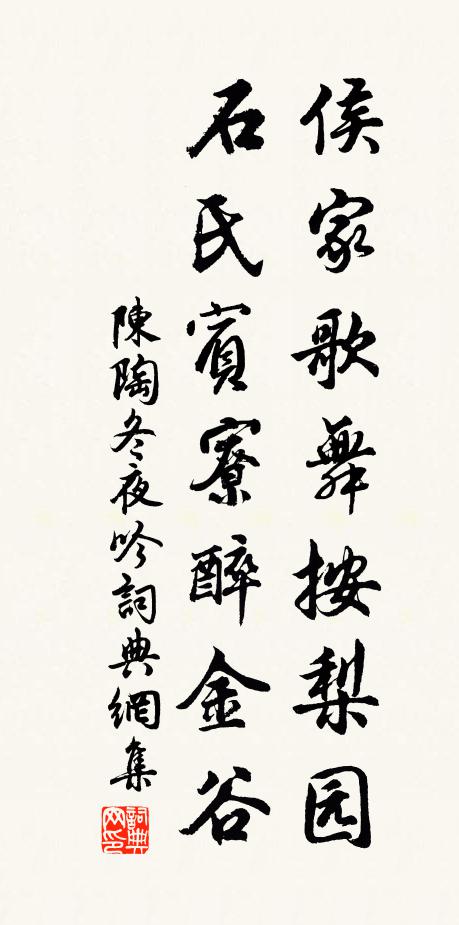 侯家歌舞按梨园
石氏賓寮醉金谷
陳陶冬夜吟詞典網集
詞典网印